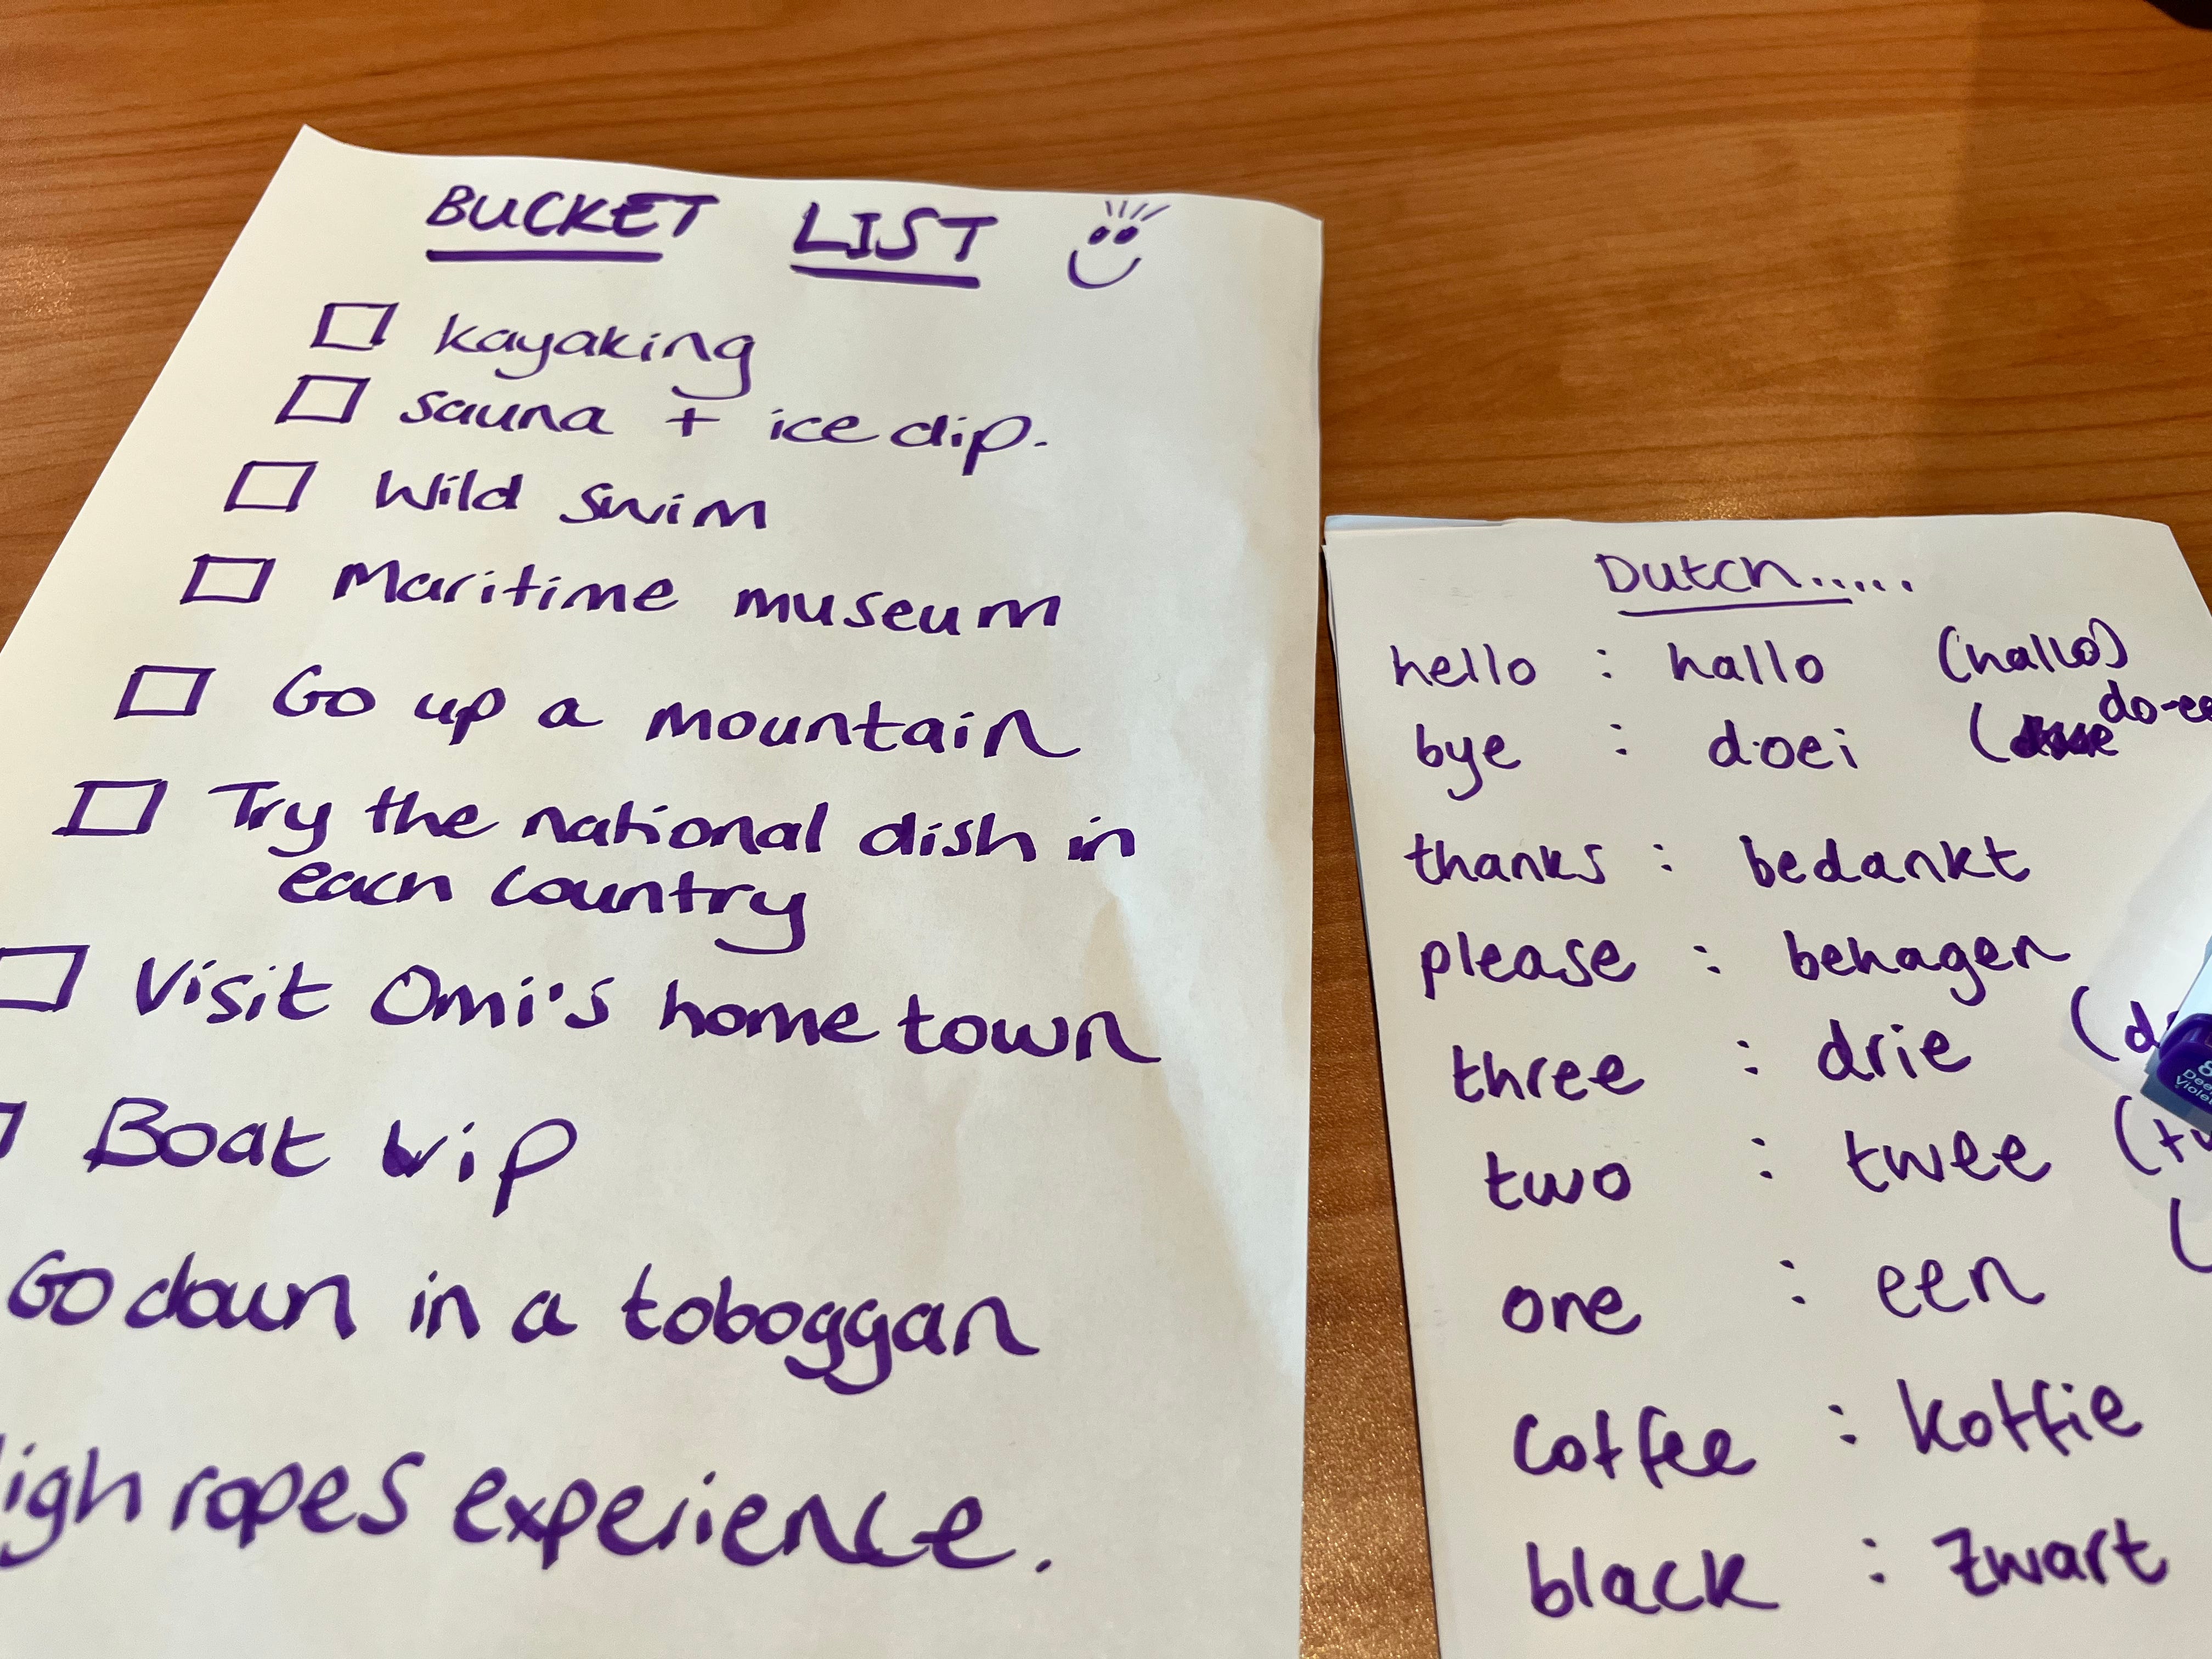 BUCKET LIST
kayaking
sauna + ice dip.
Wild swim
Maritime museum
Go up a mountain
Try the national dish in
each country
Visit Omi's home town
Boat trip
Go down in a toboggan
High ropes experience.
Dutch.....
hello : hallo (hallo)
bye : doei (do-ee
thanks : bedankt
please : behagen
three : drie
two : twee
one : een
coffee : koffie
black : zwart